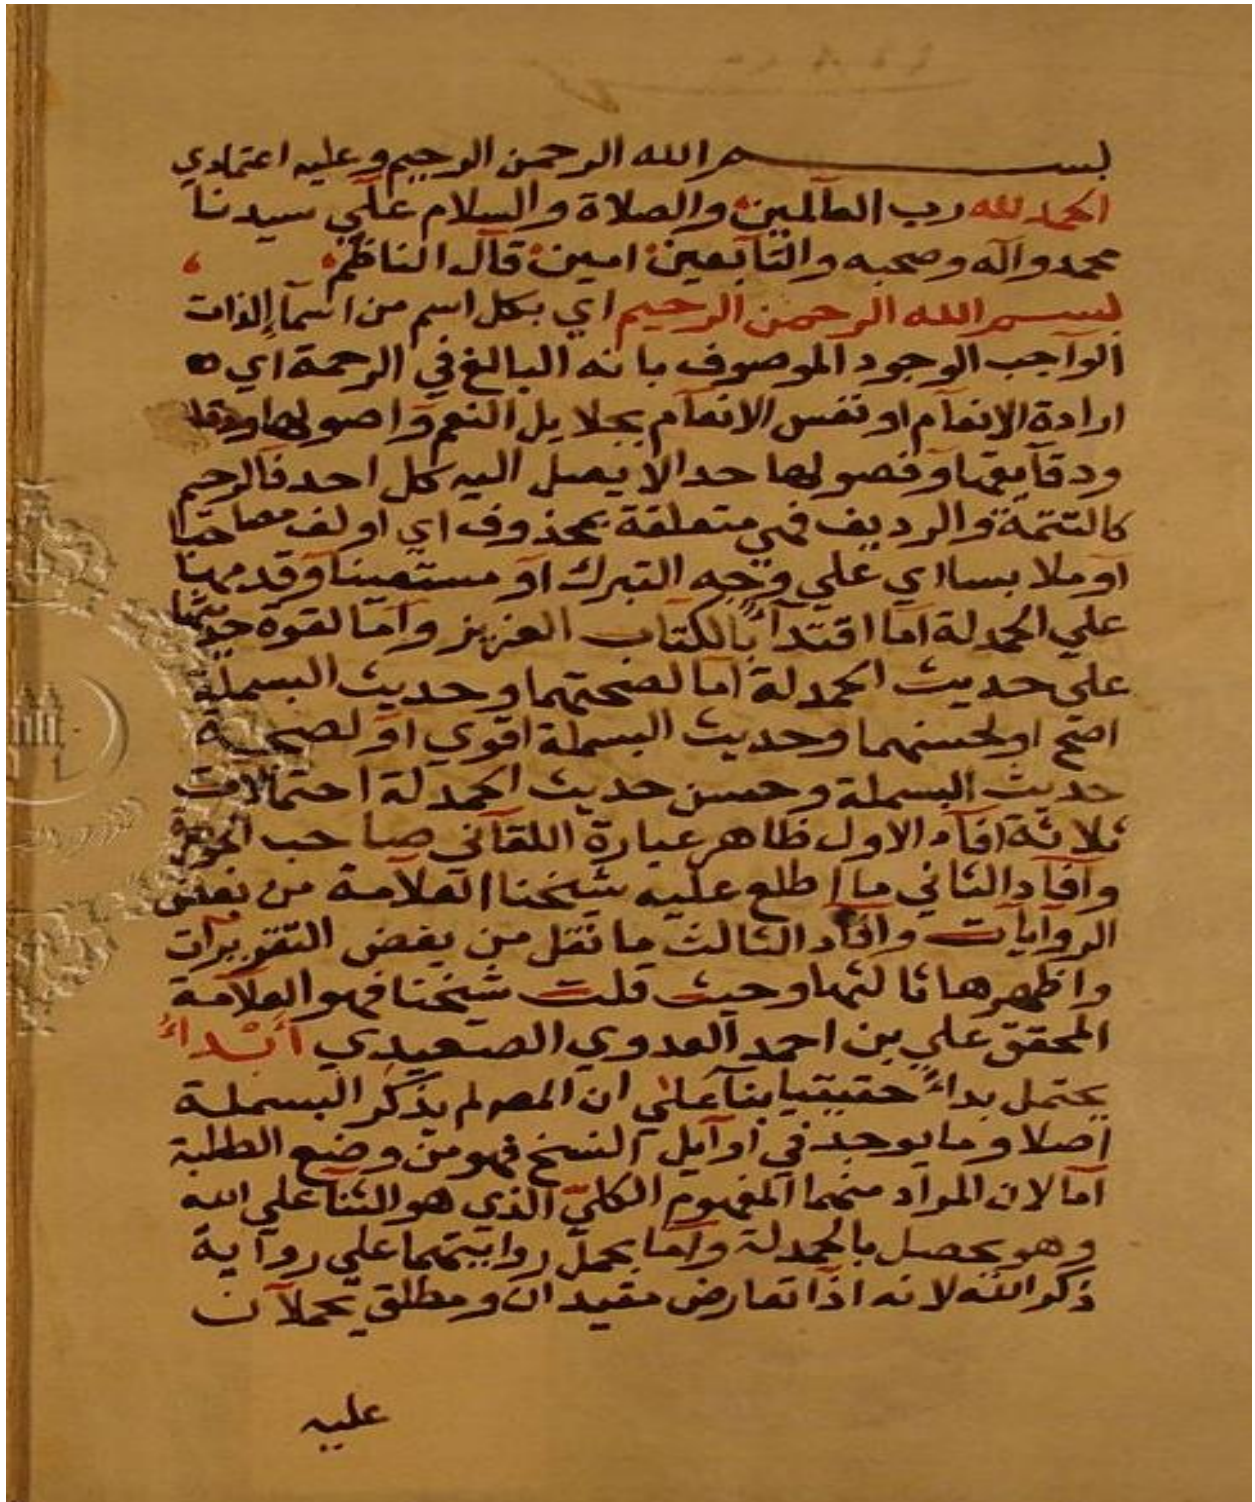 بسم الله الرحمن الرحيم وعليه اعتمادي
الحمد لله رب العالمين والصلاة والسلام علي سيدنا
محمد واله وصحبه والتابعين امين قال الناظم
بسم الله الرحمن الرحيم اي بكل اسم من اسما الذات
الواجب الوجود الموصوف بانه البالغ في الرحمة اي
ارادة الانعام او نفس الانعام بجلايل النعم واصولها
ودقايقها وفصولها حدا لا يصل اليه كل احد فالرحيم
كالتتمة والرديف فهي متعلقة بمحذوف اي اولف مصاحبا
او ملابسا اي علي وجه التبرك او مستعينا وقدمها
علي الحمدلة اما اقتداءً بالكتاب العزيز واما لقوه حديثها
علي حديث الحمدلة اما لصحتهما وحديث البسملة
اصح او لحسنهما وحديث البسملة اقوي او لصحة
حديث البسملة وحسن حديث الحمدلة احتمالات
ثلاثة افاد الاول ظاهر عبارة اللقاني صاحب الجوهرة
وافاد الثاني ما اطلع عليه شيخنا العلامة من بعض
الروايات وافاد الثالث ما نقل من بعض التقريرات
واظهرها ثالثها وحيث قلت شيخنا فهو العلامة
المحقق علي بن احمد العدوي الصعيدي أبْدأُ
يحتمل بداءً حقيقيا بنا علي ان المصـ لم يذكر البسملة
اصلا وما يوجد في اوايل النسخ فهو من وضع الطلبة
اما لان المراد منهما المفهوم الكليّ الذي هو الثنا علي الله
وهو يحصل بالحمدلة واما بحمل روايتهما علي رواية
ذكر الله لانه اذا تعارض مقيدان ومطلق يحملان
عليه